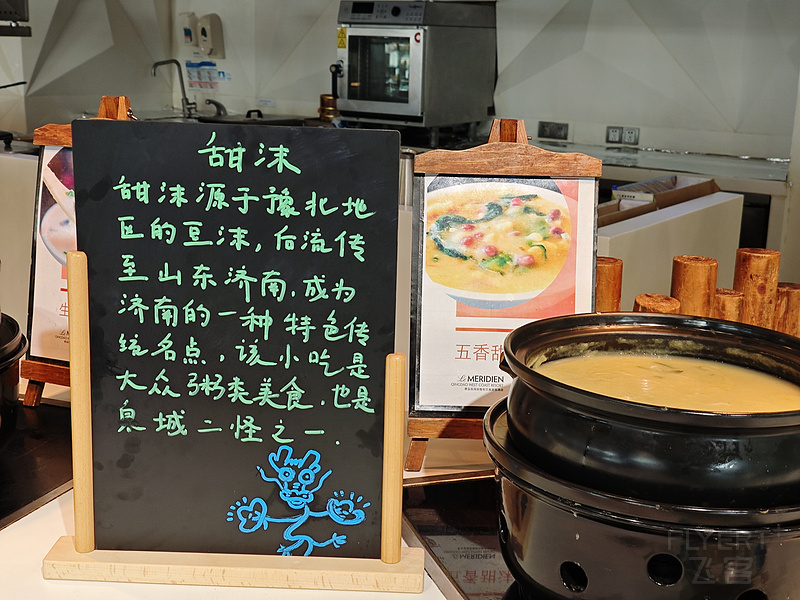 甜沫
甜沫源于豫北地
区的豆沫，后流传
至山东济南，成为
济南的一种特色传
统名点，该小吃是
大众粥类美食，也是
泉城二怪之一.
五香甜
Le MERIDIEN
QINGDAO WEST COAST RESORT
生
FLYERT
飞客